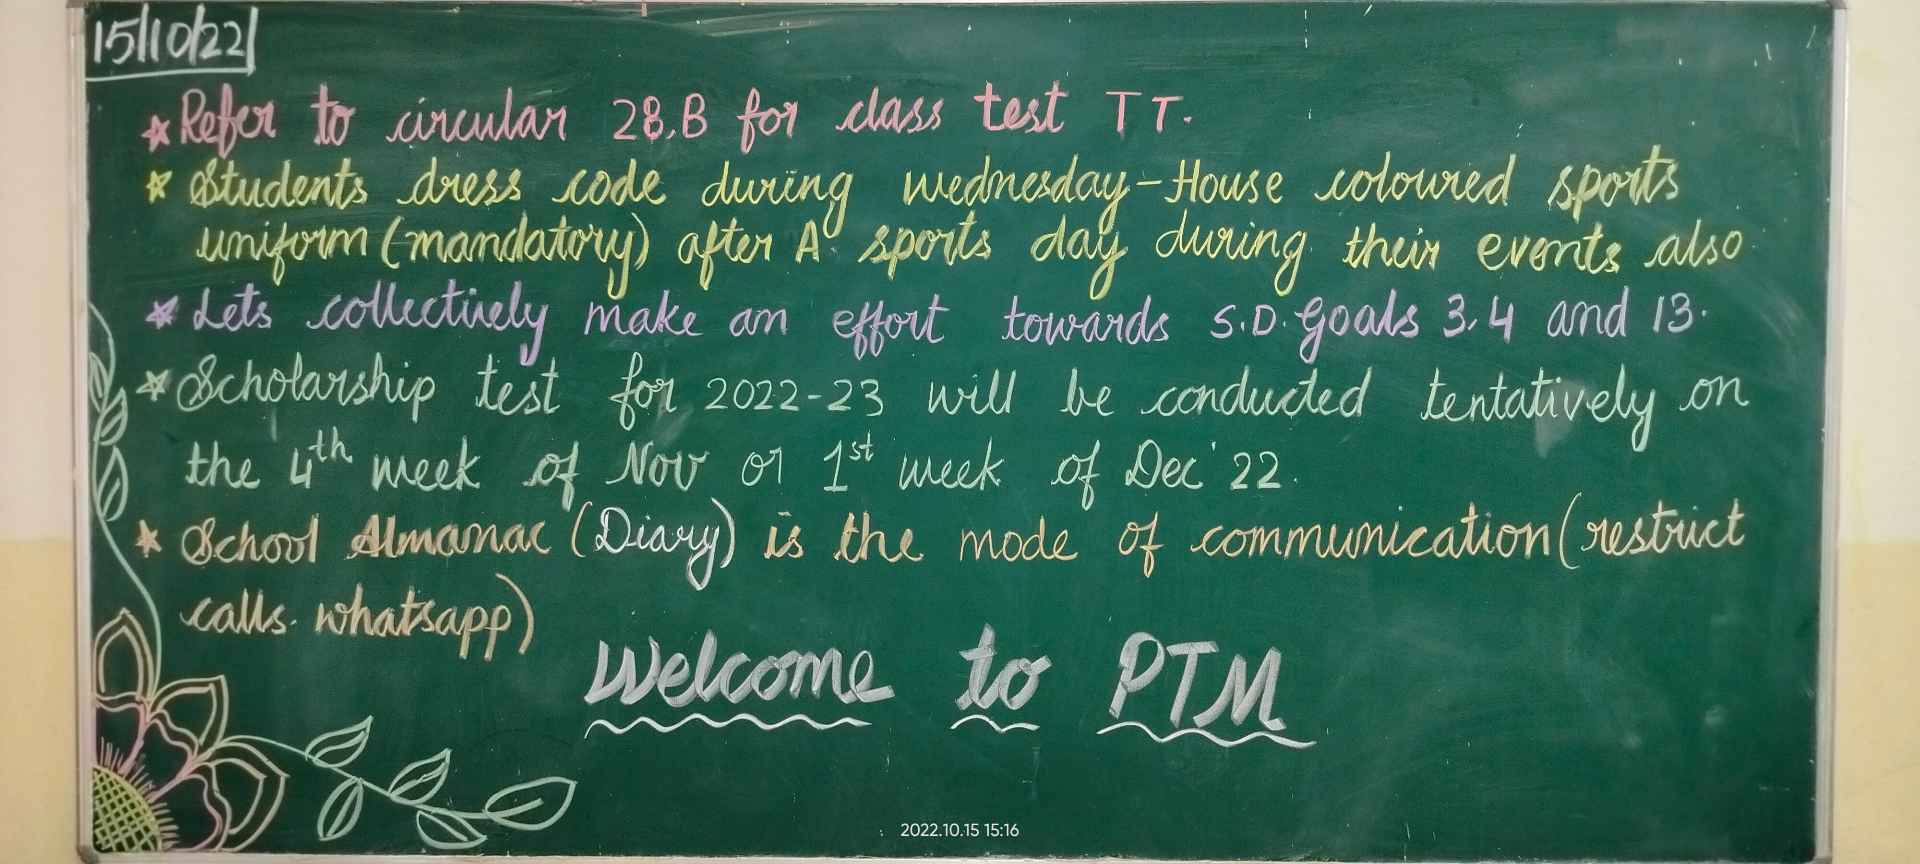 15/10/22
* Refer to circular 28.B for class test TT.
* Students dress code during wednesday - House coloured sports
uniform (mandatory) after A. sports day during their events also
* Lets collectively make an effort towards S.D. Goals 3,4 and 13.
* Scholarship test for 2022-23 will be conducted tentatively on
the 4th week of Nov or 1st week of Dec' 22.
* School Almanac (Diary) is the mode of communication (restrict
calls. whatsapp)
Welcome to PTM
2022.10.15 15:16